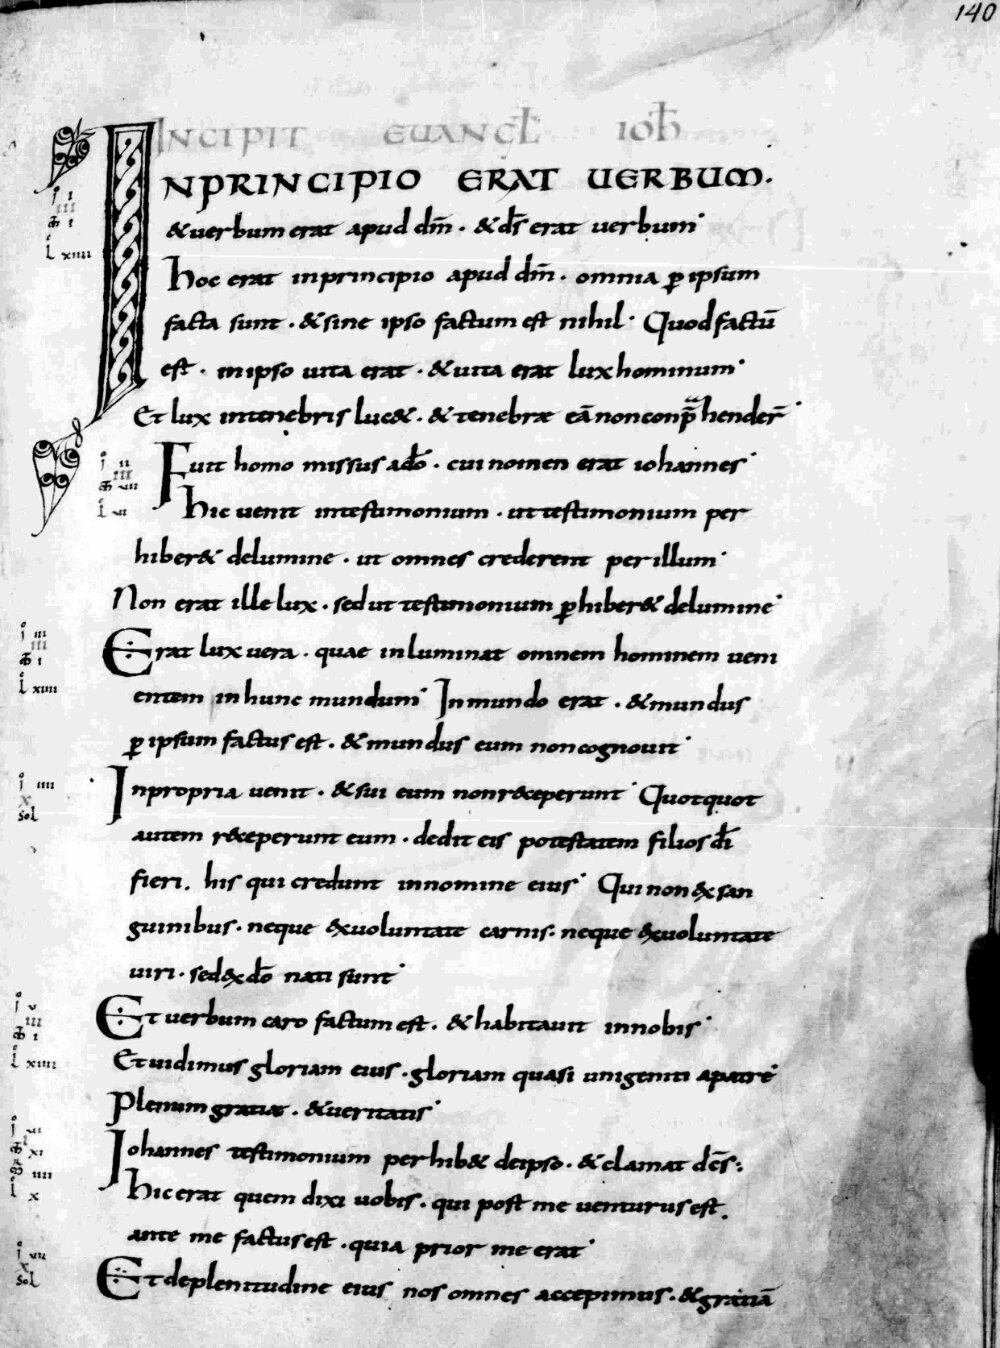 140
INCIPIT EUANGL IOH
INPRINCIPIO ERAT UERBUM.
& uerbum erat apud dm̄ · & d̄s erat uerbum
Hoc erat inprincipio apud dm̄ · omnia ꝑ ipsum
facta sunt · & sine ipso factum est nihil · Quod factū
est · inipso uita erat · & uita erat lux hominum
Et lux intenebris luc& · & tenebrae eā nonconp̄hender̄
Fuit homo missus ado̅ · cui nomen erat iohannes
Hic uenit intestimonium · ut testimonium per
hiber& delumine · ut omnes crederent per illum
Non erat ille lux · sed ut testimonium ꝑhiber& delumine
Erat lux uera · quae inluminat omnem hominem ueni
entem in hunc mundum Inmundo erat · & mundus
ꝑ ipsum factus est · & mundus eum noncognouit
Inpropria uenit · & sui eum nonr&ceperunt Quotquot
autem r&ceperunt eum · dedit eis potestatem filios d̄i
fieri. his qui credunt innomine eius Qui non &x san
guinibus · neque &xuoluntate carnis · neque &xuoluntate
uiri · sed &x do̅ nati sunt
Et uerbum caro factum est · & habitauit innobis
Et uidimus gloriam eius · gloriam quasi unigeniti apatre
Plenum gratiae · & ueritatis
Iohannes testimonium perhib& deipso · & clamat dc̄s:
Hic erat quem dixi uobis · qui post me uenturus est.
ante me factus est · quia prior me erat
Et deplenitudine eius nos omnes accepimus · & gratiā